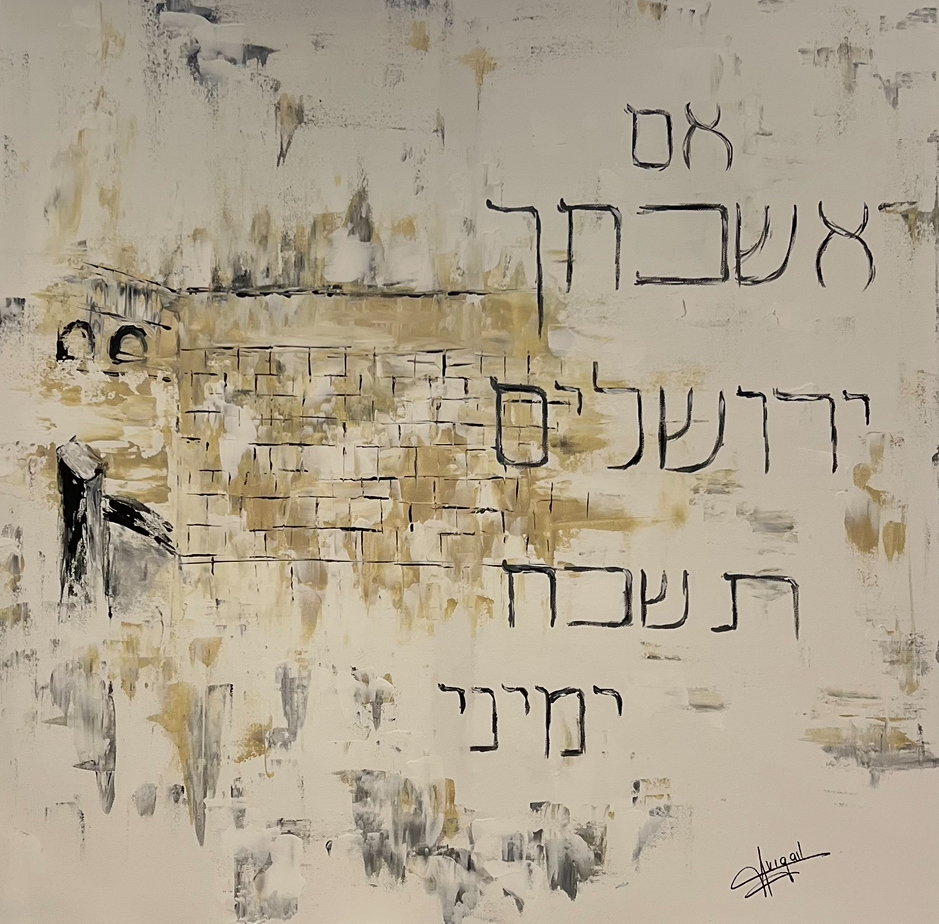 אם
אשכחך
ירושלים
תשכח
ימיני
Avigail